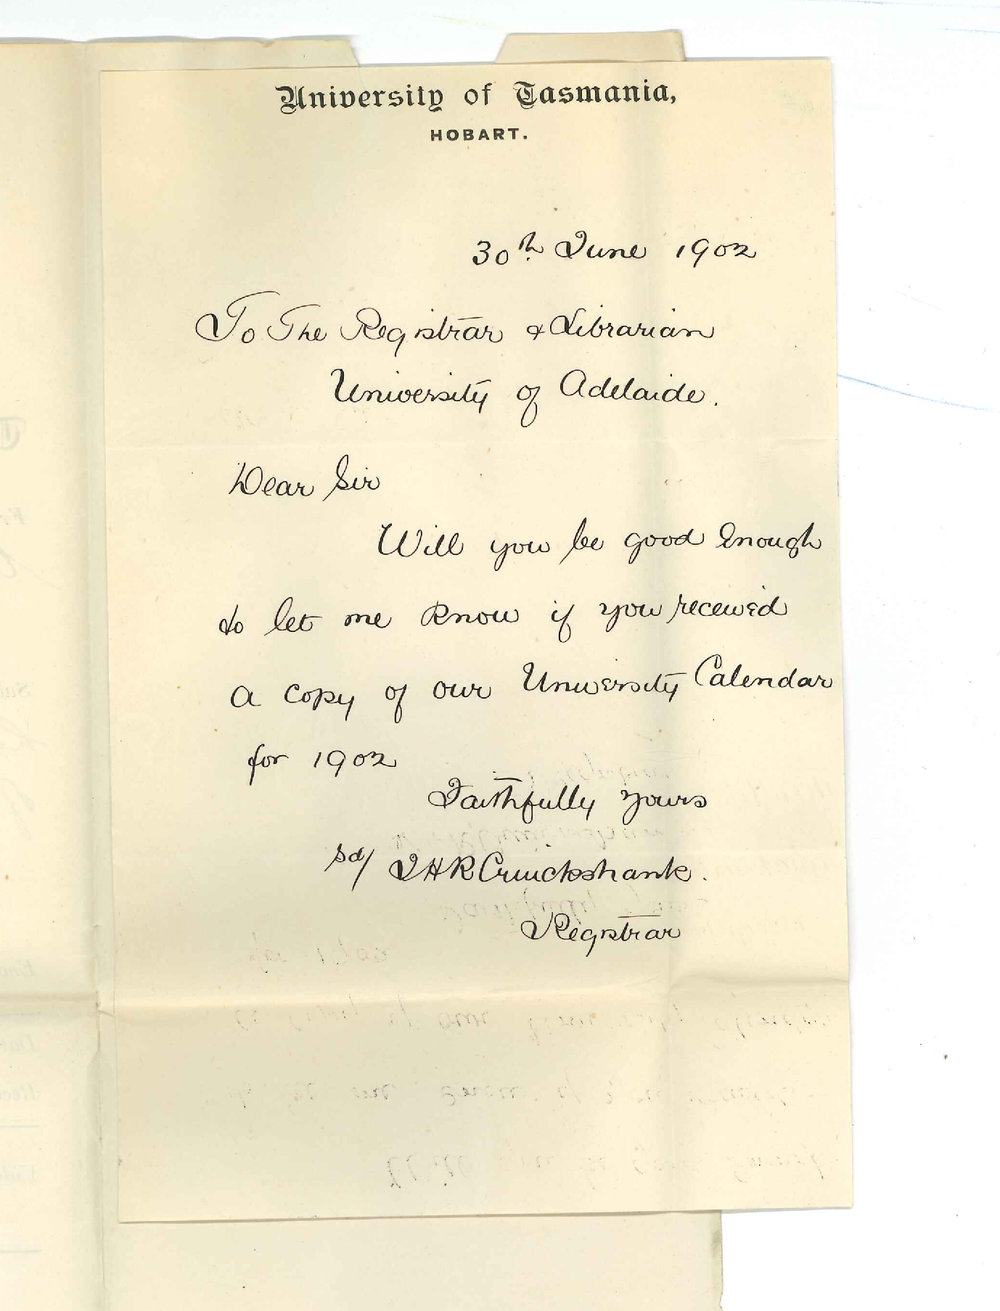 University of Tasmania,
HOBART.
30th June 1902
To The Registrar & Librarian
University of Adelaide.
Dear Sir
Will you be good Enough
to let me know if you received
a copy of our University Calendar
for 1902
Faithfully yours
sd/ J H R Cruickshank.
Registrar